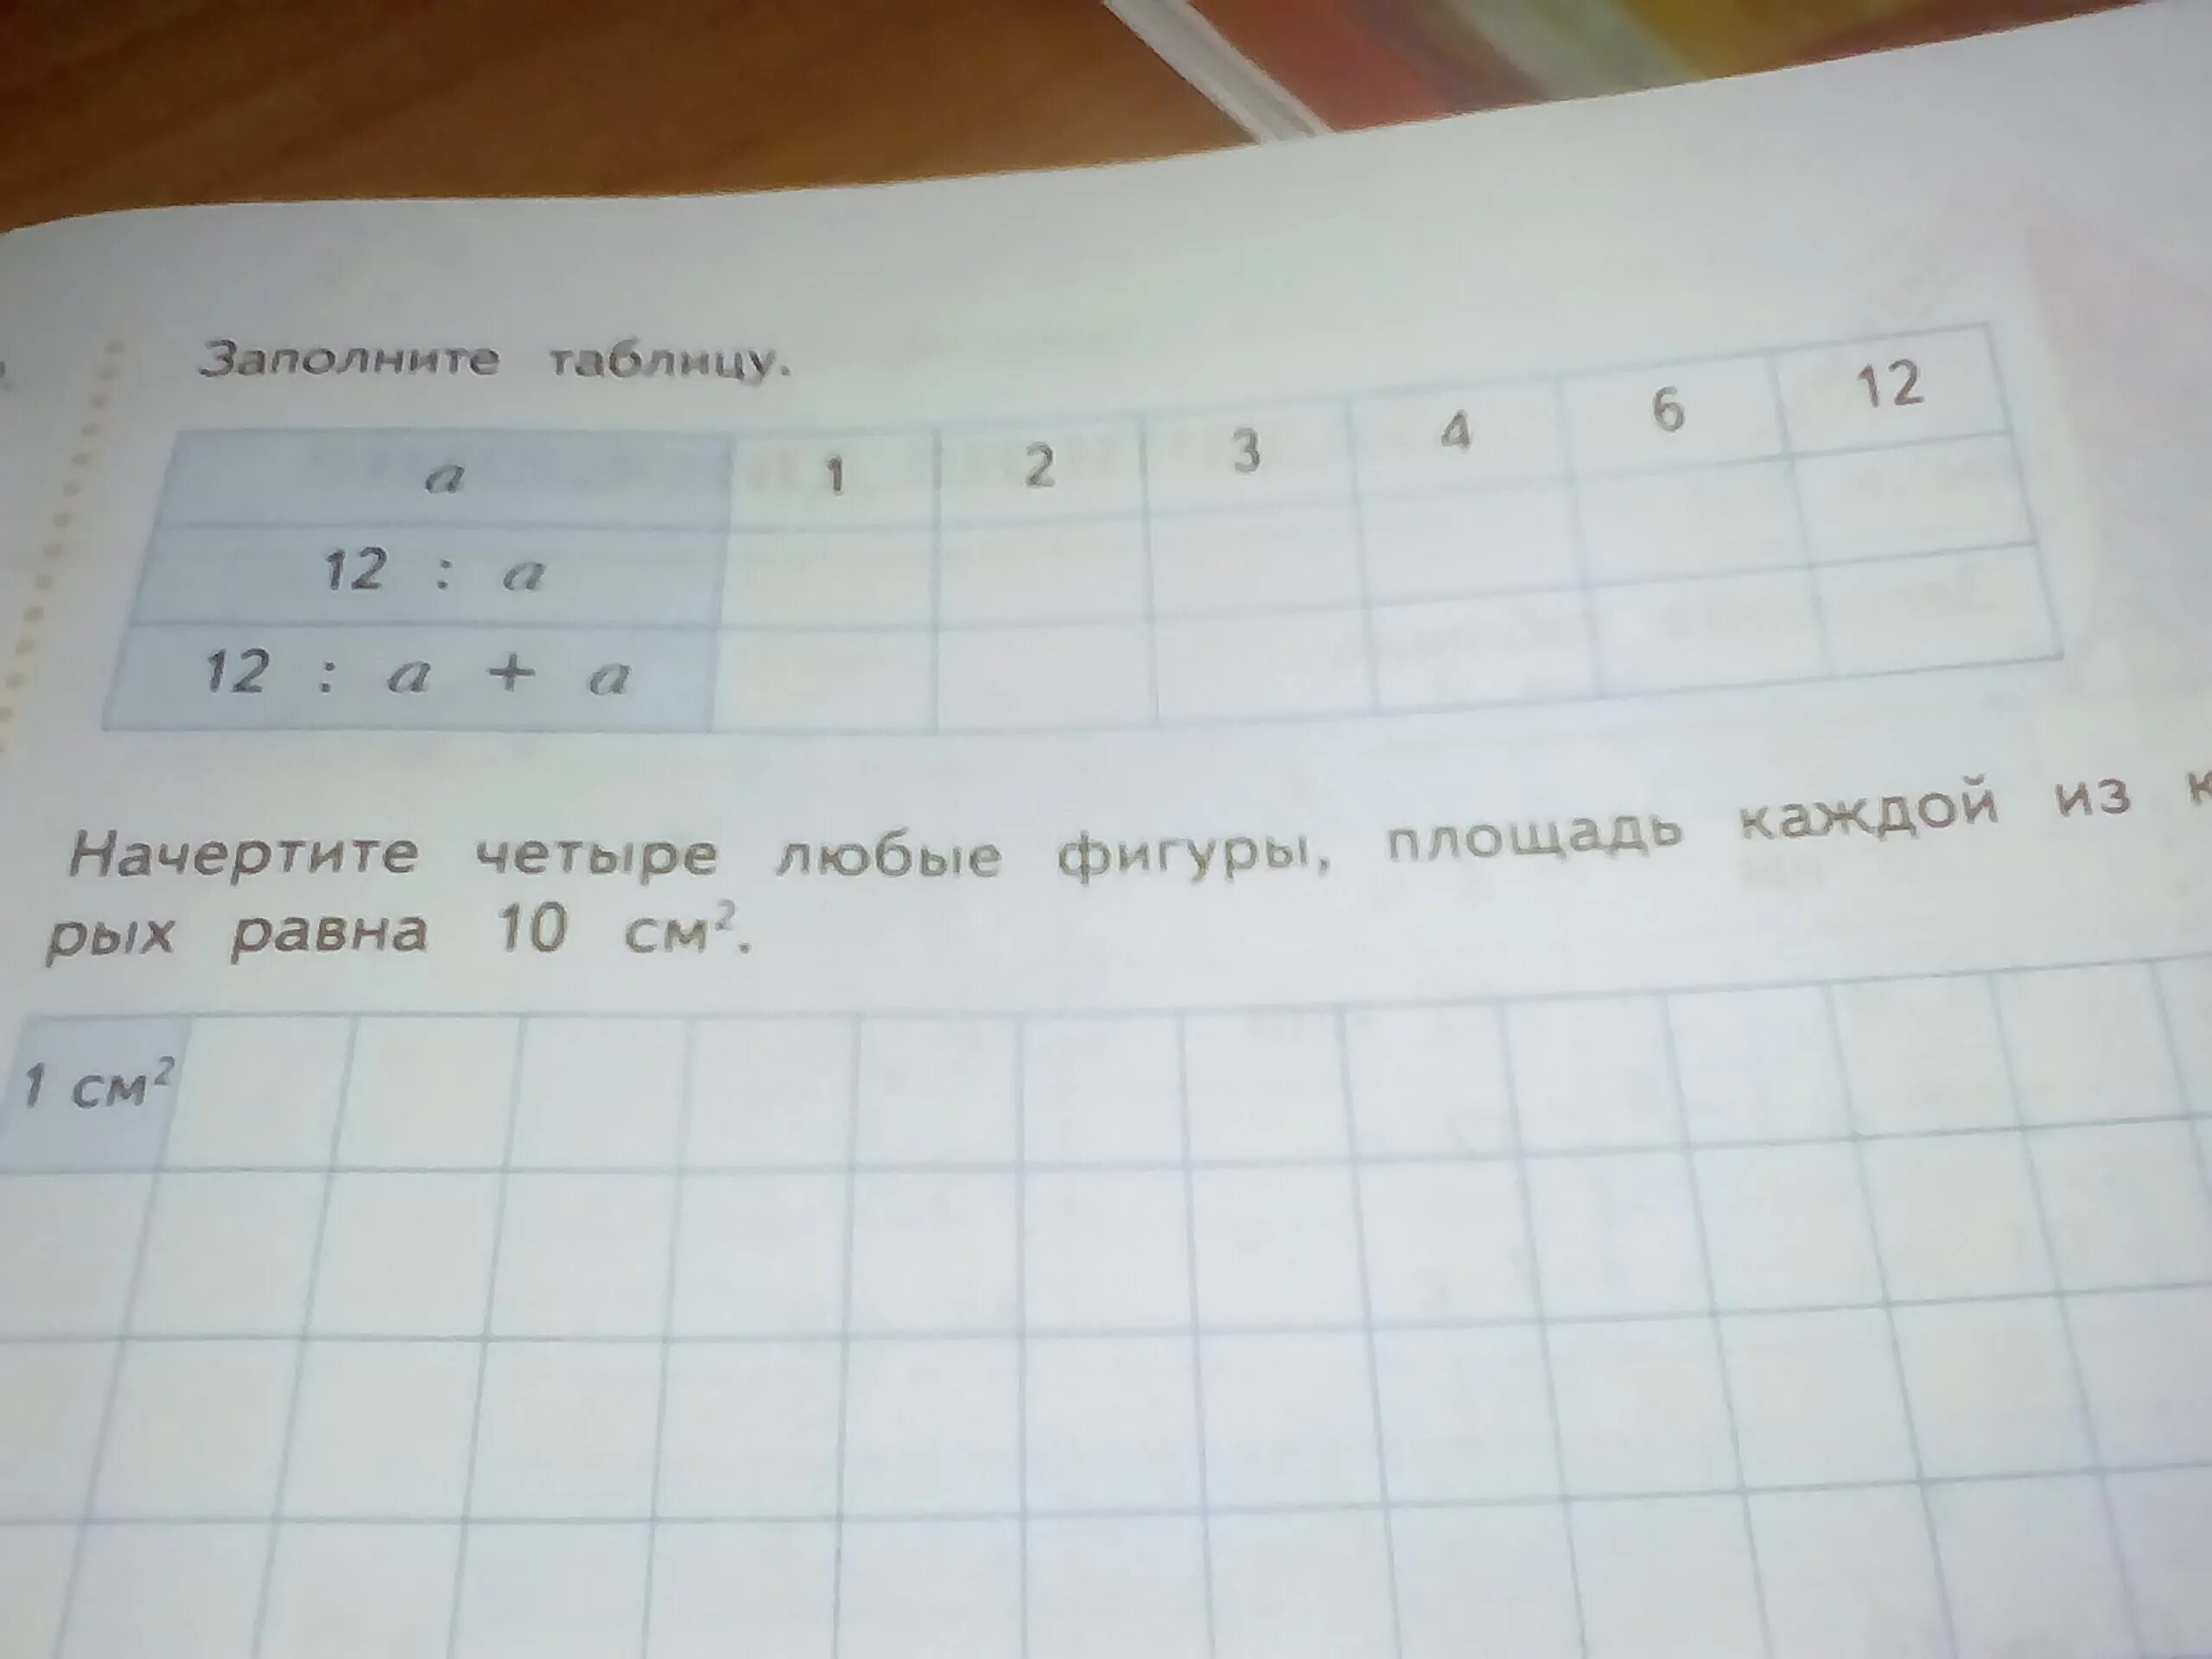 Заполните таблицу.
a 1 2 3 4 6 12
12 : a
12 : a + a
Начертите четыре любые фигуры, площадь каждой из к
рых равна 10 см².
1 см²